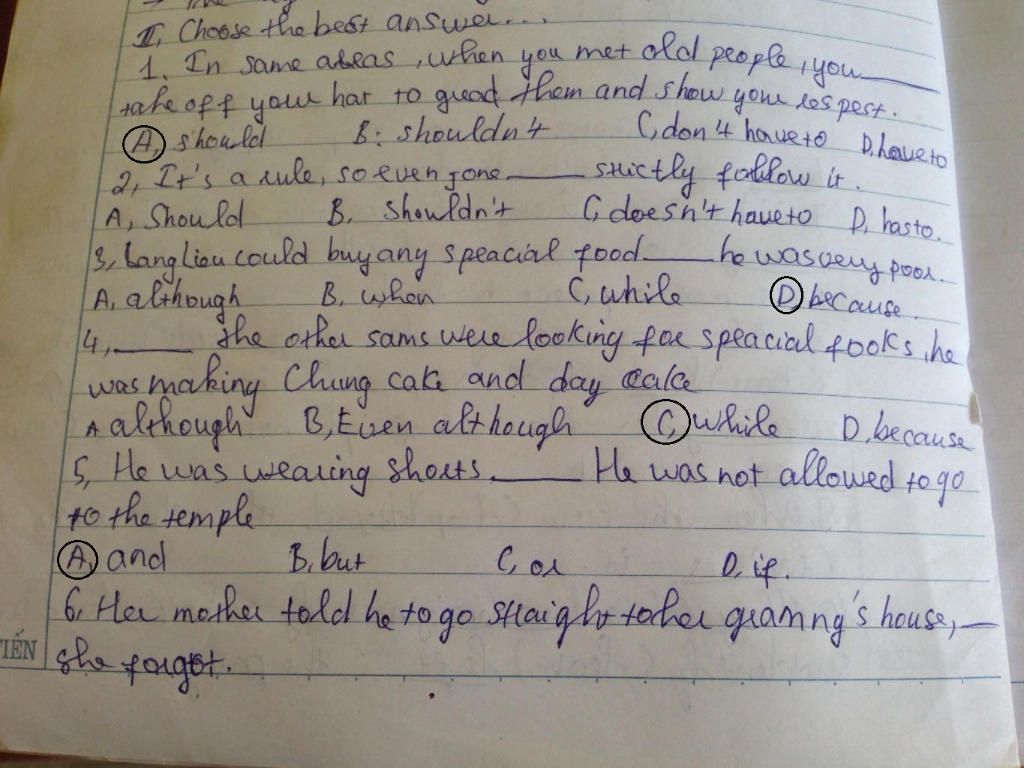 II, Choose the best answer...
1. In same areas, when you met old people, you____
take off your hat to gread them and show your respect.
A, should B: shouldn't C, don't have to D, have to
2, It's a rule, so everyone____ strictly follow it.
A, Should B. Shouldn't C, doesn't have to D, has to.
3, Lang Lieu could buy any speacial food____ he was very poor.
A, although B, when C, while D, because.
4,____ the other sams were looking for speacial fooks, he
was making Chung cake and day cake
A although B, Even although C, while D, because
5, He was wearing shorts.____ He was not allowed to go
to the temple
A, and B, but C, or D, if.
6, Her mother told he to go straight to her gramng's house,__
she forgot.
TIẾN